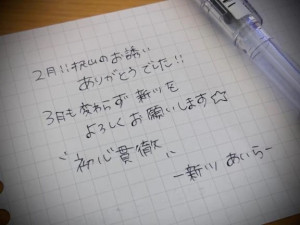 2月は沢山のお誘い
ありがとうでした!!
3月も変わらず 新ツを
よろしくお願いします☆
"初心貫徹"
-新ツ あいら-